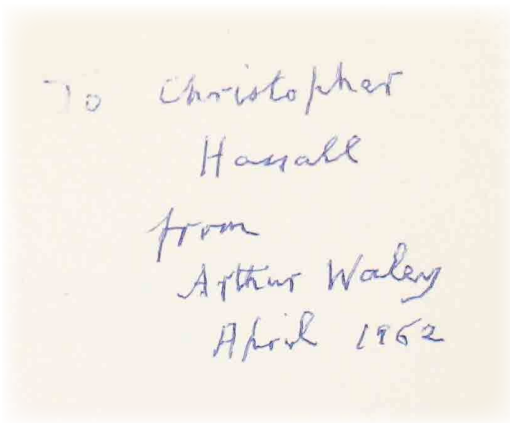 To Christopher
Hassall
from
Arthur Waley
April 1962